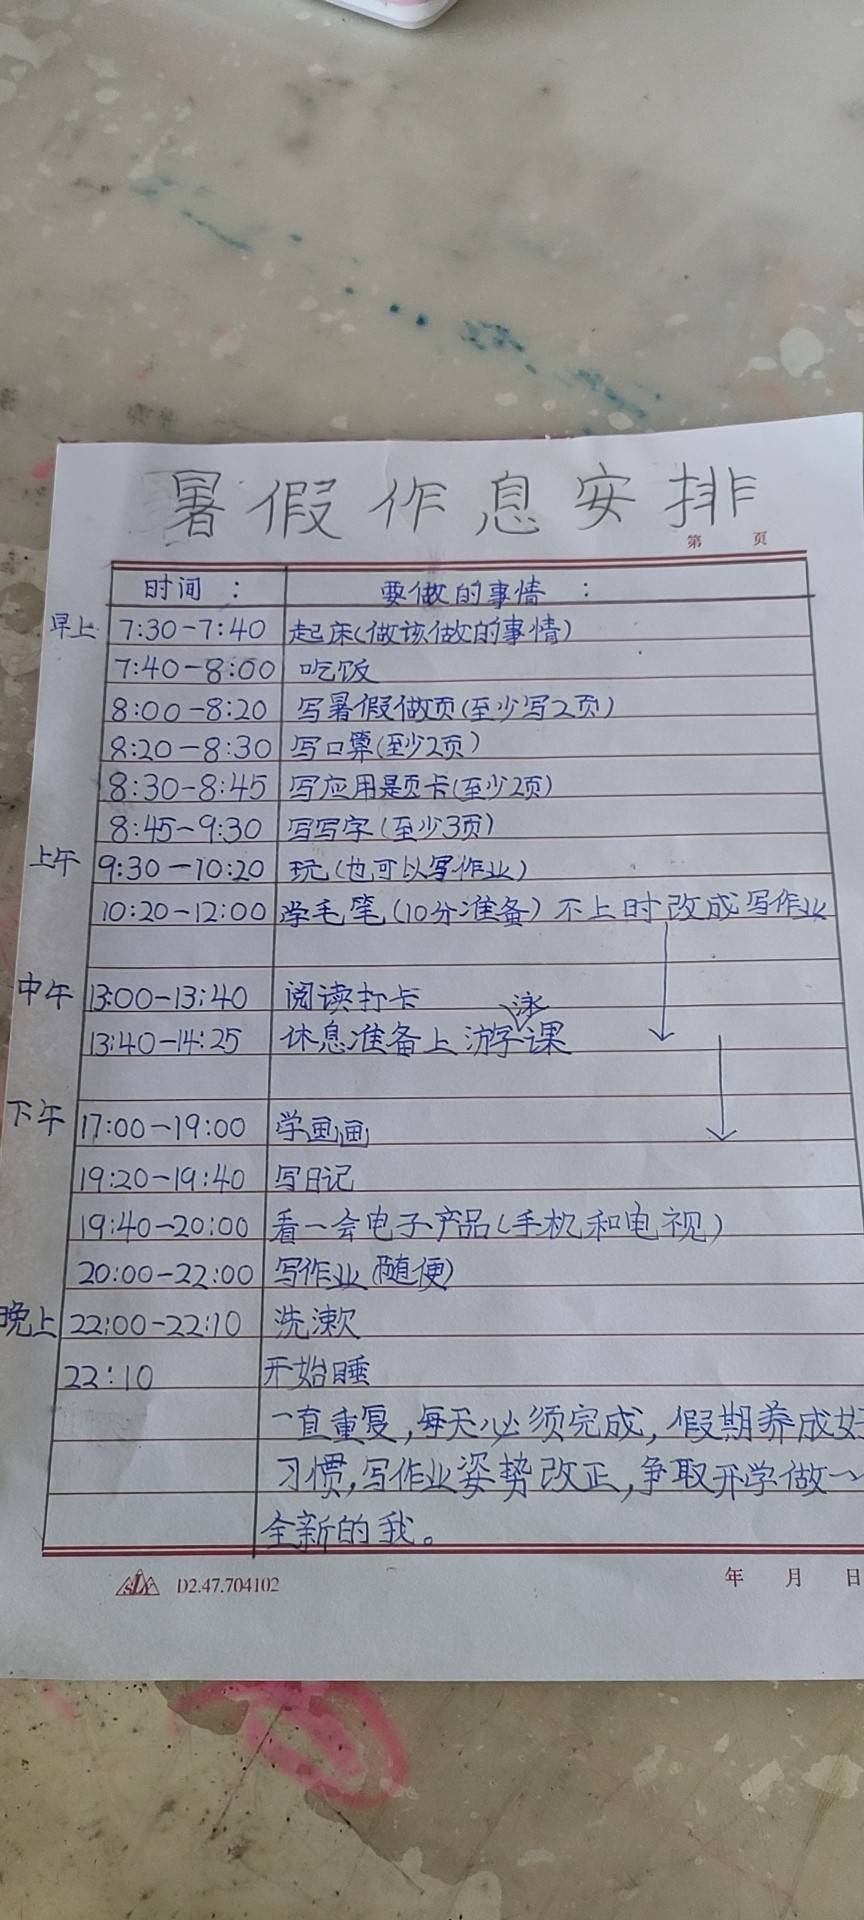 暑假作息安排
第 页
时间： 要做的事情：
早上 7:30-7:40 起床(做该做的事情)
7:40-8:00 吃饭
8:00-8:20 写暑假做页(至少写2页)
8:20-8:30 写口算(至少2页)
8:30-8:45 写应用题页卡(至少2页)
8:45-9:30 写写字(至少3页)
上午 9:30-10:20 玩(也可以写作业)
10:20-12:00 学毛笔(10分准备) 不上时改成写作业
中午 13:00-13:40 阅读打卡
13:40-14:25 休息准备上游泳课
下午 17:00-19:00 学画画
19:20-19:40 写日记
19:40-20:00 看一会电子产品(手机和电视)
20:00-22:00 写作业(随便)
晚上 22:00-22:10 洗漱
22:10 开始睡
一直重复,每天必须完成,假期养成好
习惯,写作业姿势改正,争取开学做一
全新的我。
SLY D2.47.704102 年 月 日